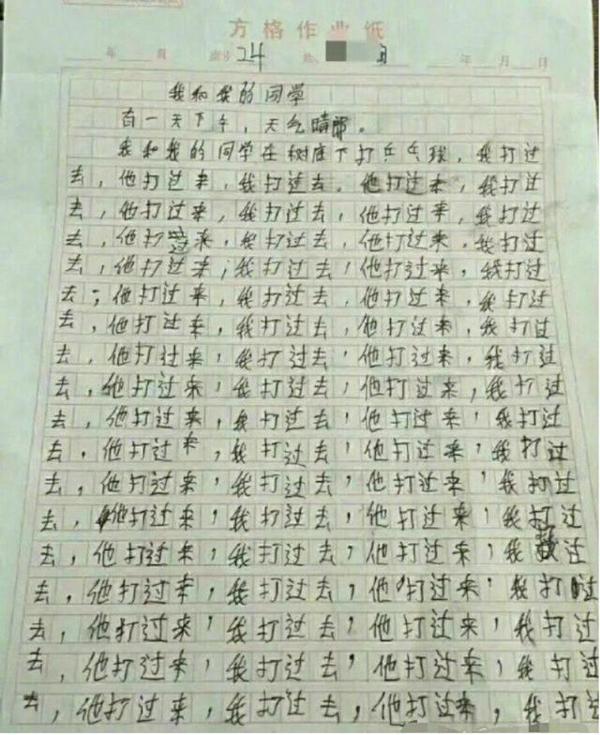 方格作业纸
年 座号 24 年 月 日
我和我的同学
有一天下午，天气晴朗。
我和我的同学在树底下打乒乓球，我打过
去，他打过来，我打过去。他打过来，我打过
去，他打过来，我打过去，他打过来，我打过
去，他打过来，我打过去，他打过来，我打过
去，他打过来；我打过去，他打过来，我打过
去；他打过来，我打过去，他打过来，我打过
去，他打过来，我打过去，他打过来，我打过
去，他打过来，我打过去，他打过来，我打过
去，他打过来，我打过去，他打过来，我打过
去，他打过来，我打过去，他打过来，我打过
去，他打过来，我打过去，他打过来，我打过
去，他打过来，我打过去，他打过来，我打过
去，他打过来，我打过去，他打过来，我打过
去，他打过来，我打过去，他打过来，我过
去，他打过来，我打过去，他打过来，我打过
去，他打过来，我打过去，他打过来，我打过
去，他打过来，我打过去，他打过来，我打过
去，他打过来，我打过去，他打过来，我打过